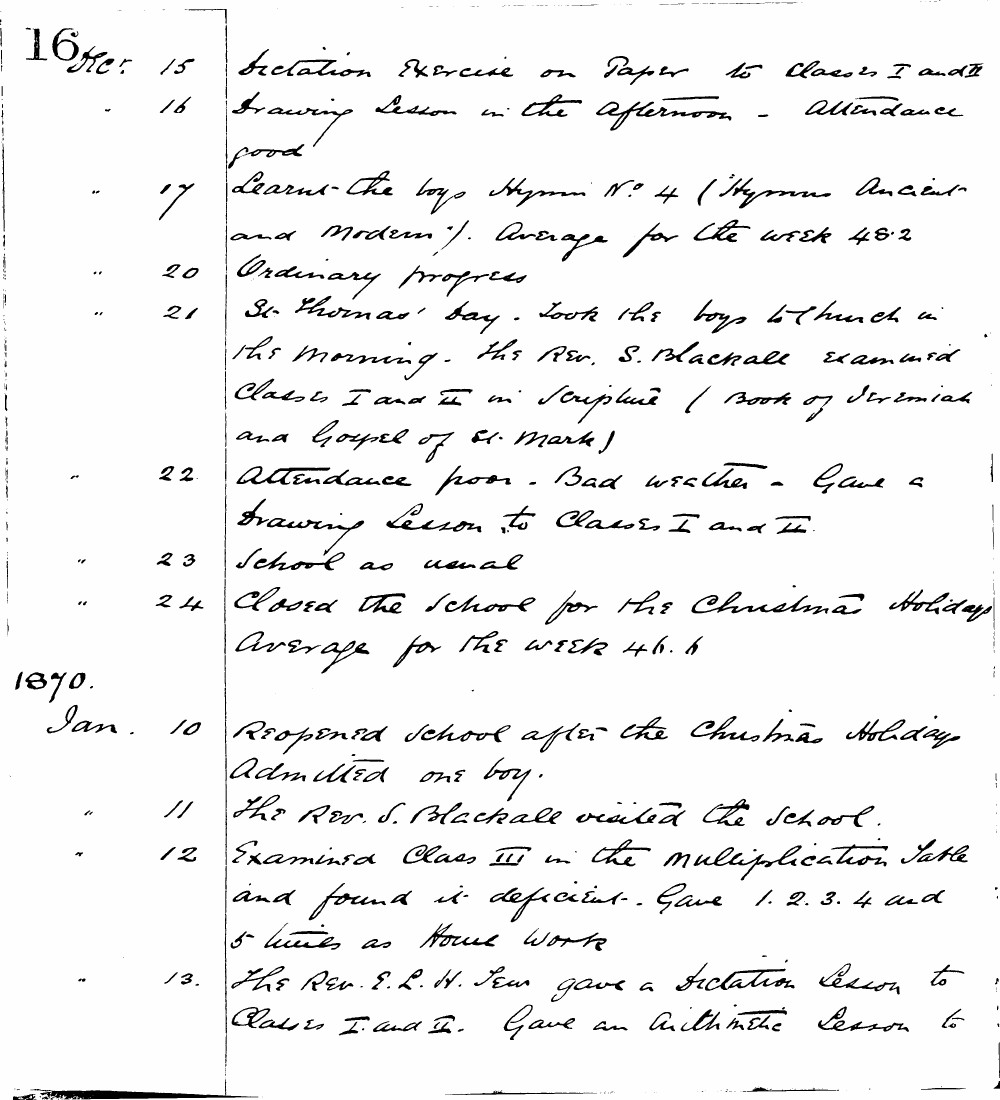 16
Decr. 15 Dictation Exercise on Paper to Classes I and II
" 16 Drawing Lesson in the Afternoon - Attendance
good
" 17 Learnt the boys Hymn No. 4 ('Hymns Ancient
and Modern'). Average for the week 48.2
" 20 Ordinary progress
" 21 St. Thomas' Day. Took the boys to Church in
the Morning. The Rev. S. Blackall examined
Classes I and II in Scripture (Book of Jeremiah
and Gospel of St. Mark)
" 22 Attendance poor - Bad weather - Gave a
Drawing Lesson to Classes I and II
" 23 School as usual
" 24 Closed the School for the Christmas Holidays
Average for the week 46.6
1870.
Jan. 10 Reopened School after the Christmas Holidays
Admitted one boy.
" 11 The Rev. S. Blackall visited the School.
" 12 Examined Class III in the Multiplication Table
and found it deficient. Gave 1. 2. 3. 4 and
5 times as Home Work
" 13. The Rev. E. L. H. Tew gave a Dictation Lesson to
Classes I. and II. Gave an Arithmetic Lesson to